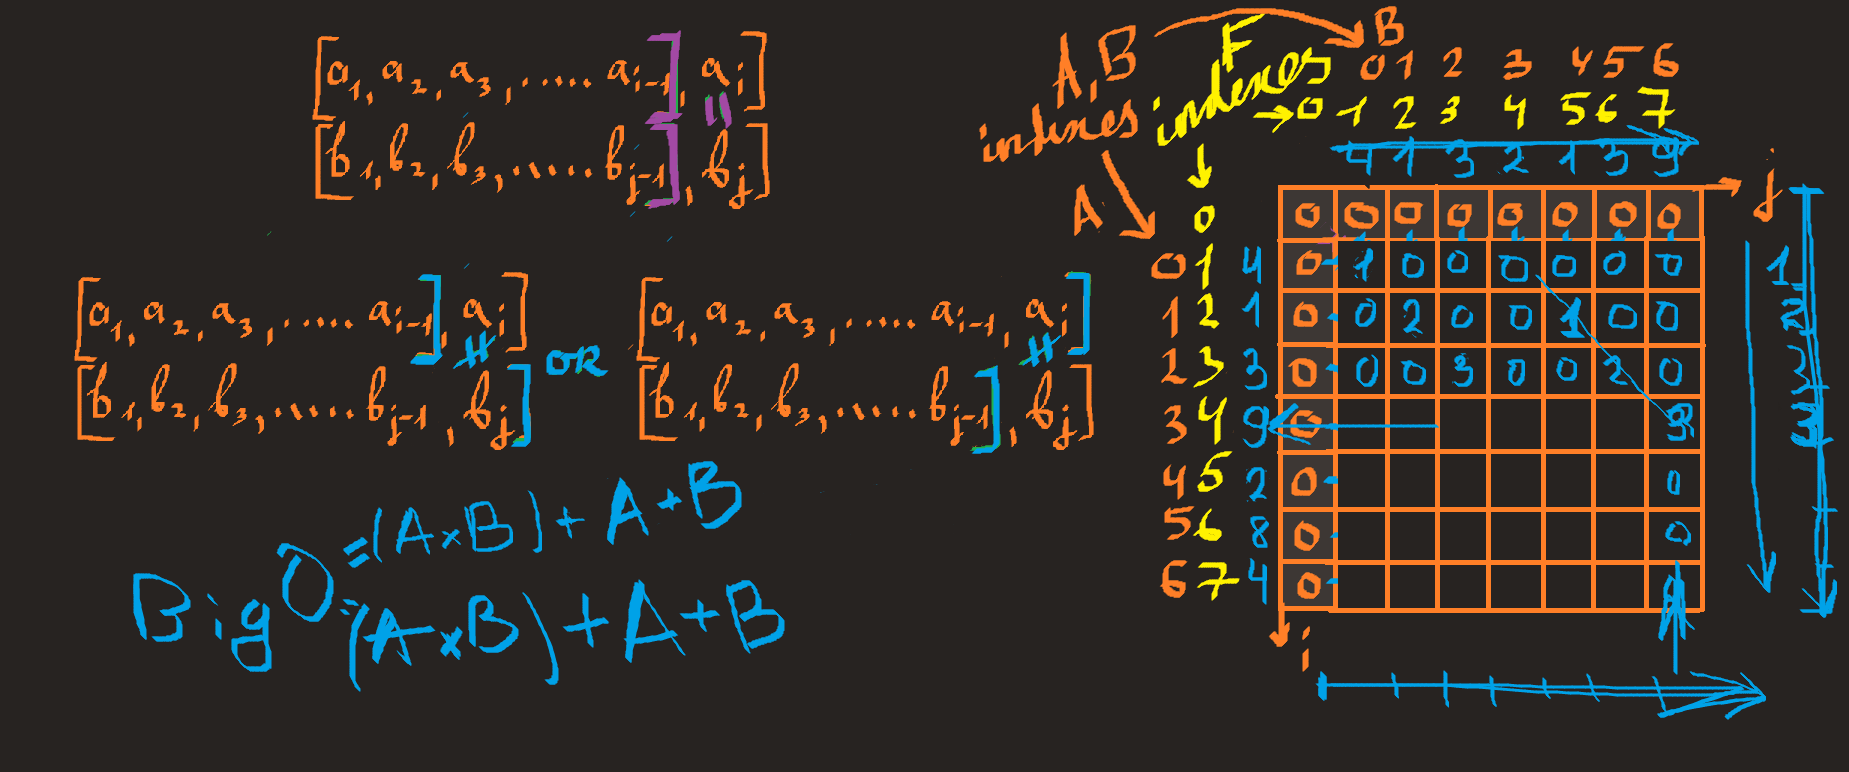 [a₁, a₂, a₃, ..... aᵢ₋₁], aᵢ]
=
[b₁, b₂, b₃, ..... bⱼ₋₁], bⱼ]
[a₁, a₂, a₃, ..... aᵢ₋₁], aᵢ]
≠
[b₁, b₂, b₃, ..... bⱼ₋₁, bⱼ]
OR
[a₁, a₂, a₃, ..... aᵢ₋₁, aᵢ]
≠
[b₁, b₂, b₃, ..... bⱼ₋₁], bⱼ]
= (A×B) + A + B
Big O = (A×B) + A + B
A,B
indexes
F
indexes
B
0 1 2 3 4 5 6
0 1 2 3 4 5 6 7
4 1 3 2 1 3 9
j
A
0 0 0 0 0 0 0 0 0
0 1 4 0 1 0 0 0 0 0 0
1 2 1 0 0 2 0 0 1 0 0
2 3 3 0 0 0 3 0 0 2 0
3 4 9 0 3
4 5 2 0 0
5 6 8 0 0
6 7 4 0
i
1
2
3